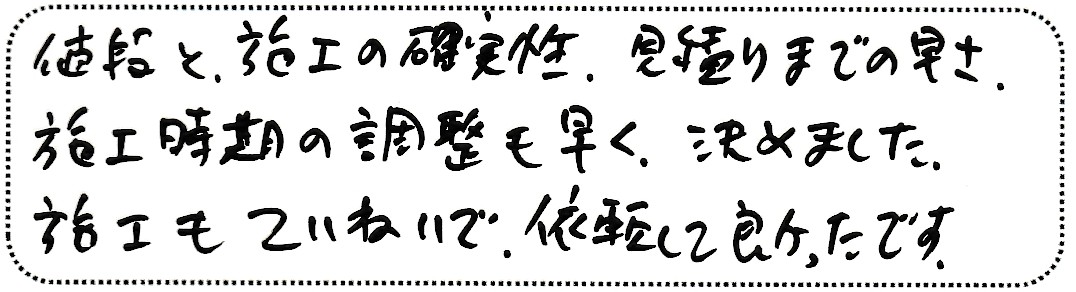 値段と、施工の確実性、見積りまでの早さ、
施工時期の調整も早く、決めました。
施工もていねいで、依頼して良かったです。